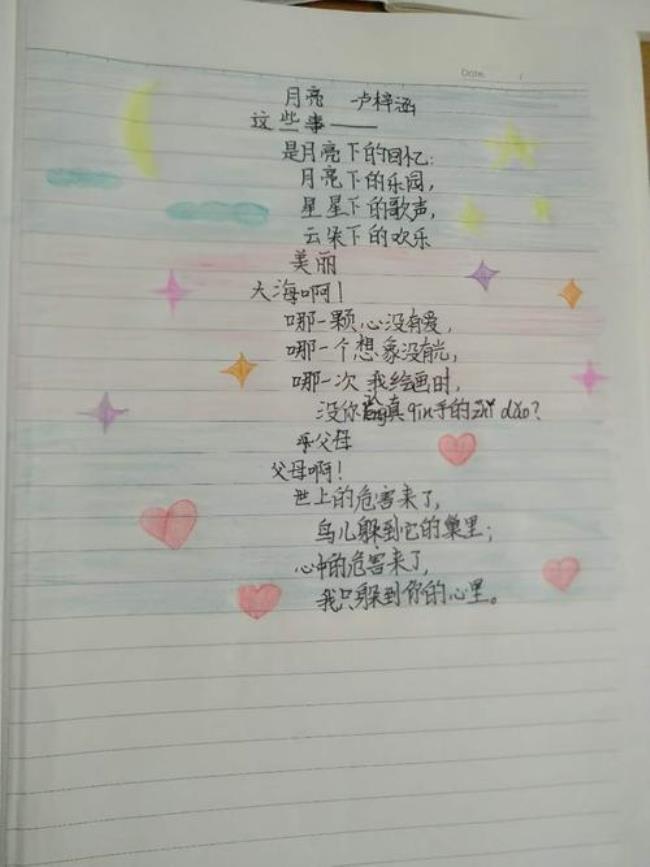 Date /
月亮 卢梓涵
这些事——
是月亮下的回忆：
月亮下的乐园，
星星下的歌声，
云朵下的欢乐
美丽
大海啊！
哪一颗心没有爱，
哪一个想象没有光，
哪一次 我绘画时，
没你 真qin手的zhǐ dǎo？
父母
父母啊！
世上的危害来了，
鸟儿躲到它的巢里；
心中的危害来了，
我只躲到你的心里。